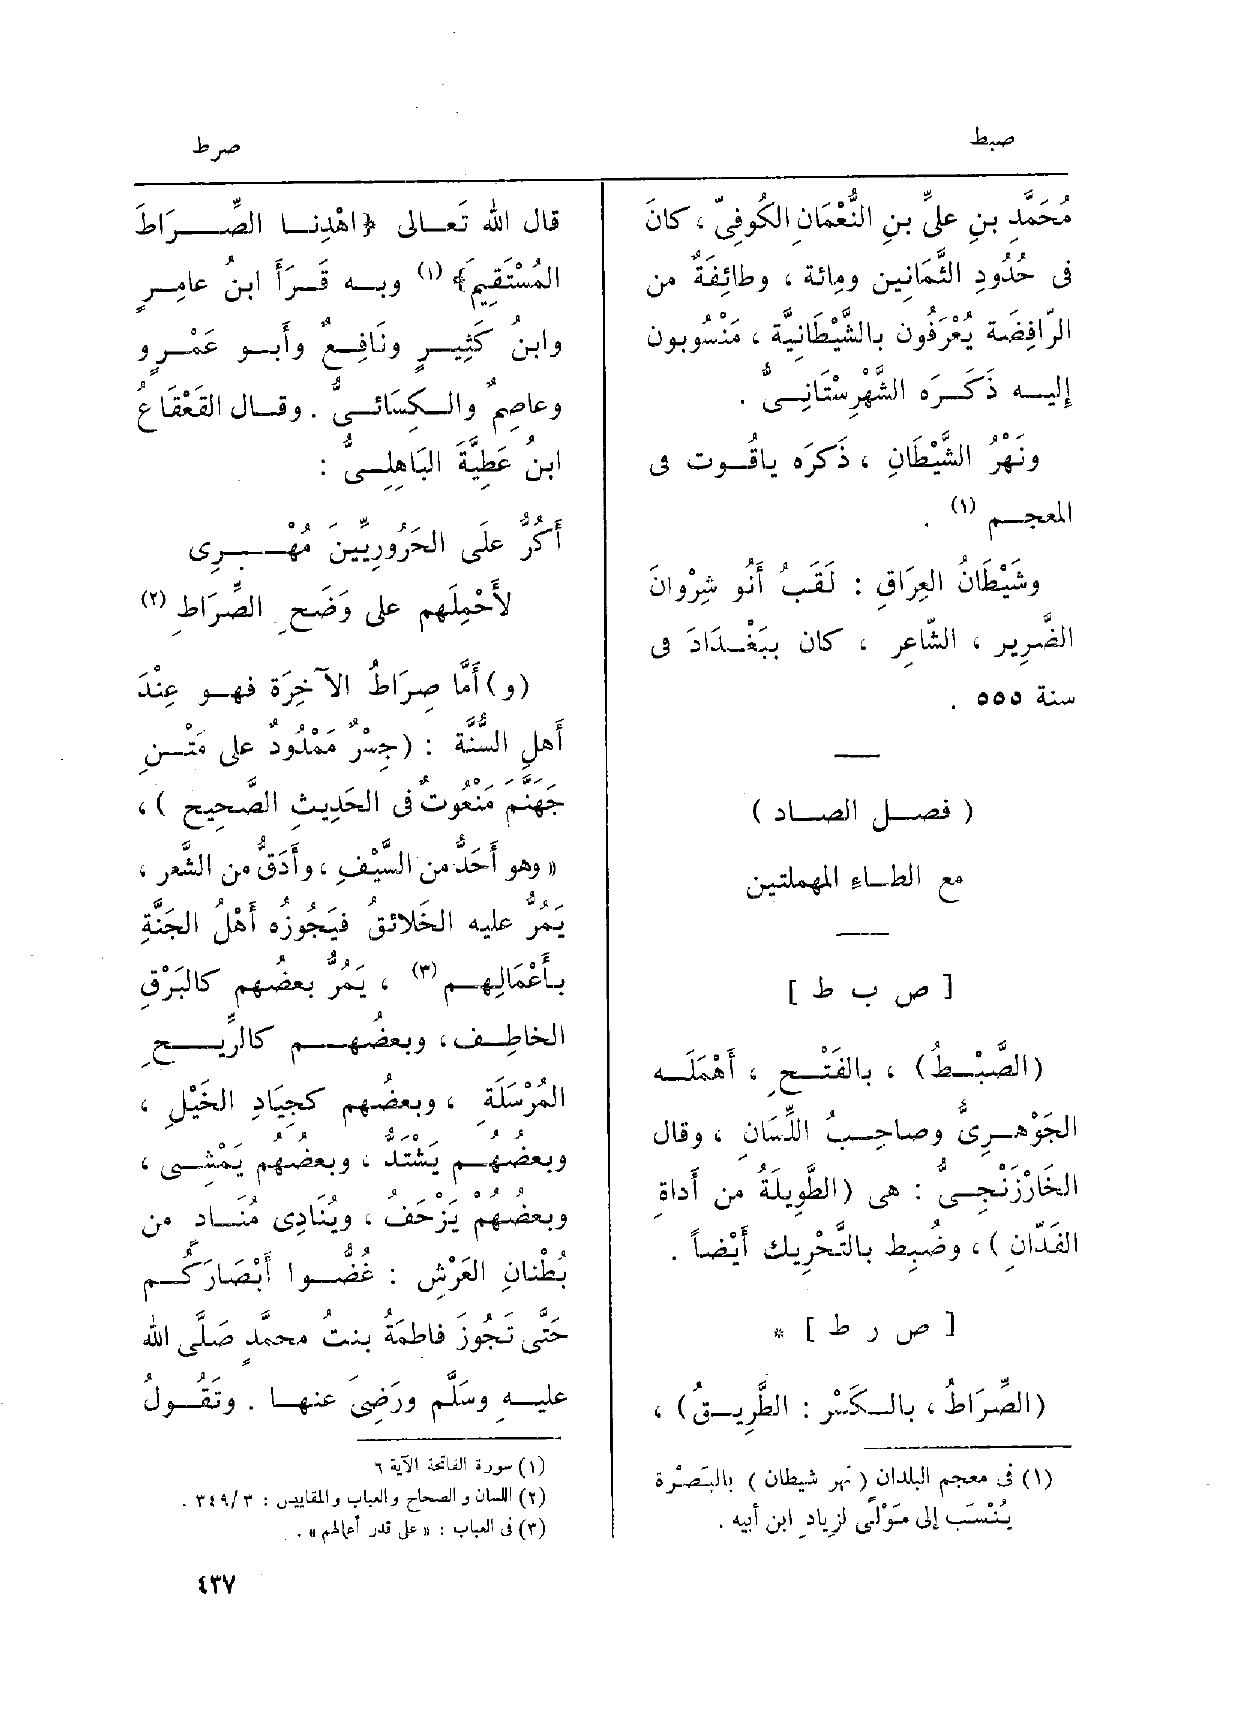 صبط
صرط
مُحَمَّدِ بنِ علىِّ بنِ النُّعْمَانِ الكُوفِىّ ، كانَ
فى حُدُودِ الثَّمَانِين ومِائة ، وطائِفَةٌ من
الرّافِضَة يُعْرَفُون بالشَّيْطَانِيَّة ، مَنْسُوبون
إليه ذَكَرَه الشَّهْرِسْتَانِىُّ .
ونَهْرُ الشَّيْطَانِ ، ذَكَرَه ياقُوت فى
المعجم (١) .
وشَيْطَانُ العِرَاقِ : لَقَبُ أَنُو شِرْوانَ
الضَّرِير ، الشّاعِر ، كان ببَغْدَادَ فى
سنة ٥٥٥ .
( فصل الصاد )
مع الطاء المهملتين
[ ص ب ط ]
(الصَّبْطُ) ، بالفَتْحِ ، أَهْمَلَه
الجَوْهَرِىُّ وصاحِبُ اللِّسَانِ ، وقال
الخَارْزَنْجِىُّ : هى (الطَّوِيلَةُ من أَداةِ
الفَدّانِ) ، وضُبِط بالتَّحْرِيك أَيْضاً .
[ ص ر ط ] *
(الصِّرَاطُ ، بالكَسْر : الطَّرِيقُ) ،
(١) فى معجم البلدان ( نهر شيطان ) بالبَصْرة
يُنْسَب إلى مَوْلًى لزيادِ ابن أبيه .
قال الله تَعالى ﴿اهْدِنا الصِّرَاطَ
المُسْتَقِيمَ﴾ (١) وبه قَرَأَ ابنُ عامِرٍ
وابنُ كَثِيرٍ ونَافِعٌ وأَبو عَمْرٍو
وعاصِمٌ والكِسَائىُّ . وقال القَعْقَاعُ
ابنُ عَطِيَّةَ البَاهِلِىُّ :
أَكُرُّ علَى الحَرُورِيِّينَ مُهْرِى
لأَحْمِلَهم على وَضَحِ الصِّرَاطِ (٢)
(و) أَمَّا صِرَاطُ الآخِرَة فهو عِنْدَ
أَهلِ السُّنَّة : (جِسْرٌ مَمْدُودٌ على مَتْنِ
جَهَنَّمَ مَنْعُوتٌ فى الحَدِيثِ الصَّحِيح ) ،
« وهو أَحَدُّ من السَّيْفِ ، وأَدَقُّ من الشَّعر ،
يَمُرُّ عليه الخَلائقُ فيَجُوزُه أَهْلُ الجَنَّةِ
بأَعْمَالِهم (٣) ، يَمُرُّ بعضُهم كالبَرْقِ
الخاطِف ، وبعضُهم كالرِّيحِ
المُرْسَلَةِ ، وبعضُهم كجِيَادِ الخَيْلِ ،
وبعضُهم يَشْتَدُّ ، وبعضُهم يَمْشِى ،
وبعضُهُم يَزْحَفُ ، ويُنَادِى مُنَادٍ من
بُطْنانِ العَرْشِ : غُضُّوا أَبْصَارَكُم
حَتَّى تَجُوزَ فاطمَةُ بنتُ محمَّدٍ صَلَّى الله
عليهِ وسَلَّم ورَضِىَ عنها . وتَقُولُ
(١) سورة الفاتحة الآية ٦
(٢) اللسان والصحاح والعباب والمقاييس : ٣/ ٣٤٩ .
(٣) فى العباب : « على قدر أعمالهم » .
٤٣٧